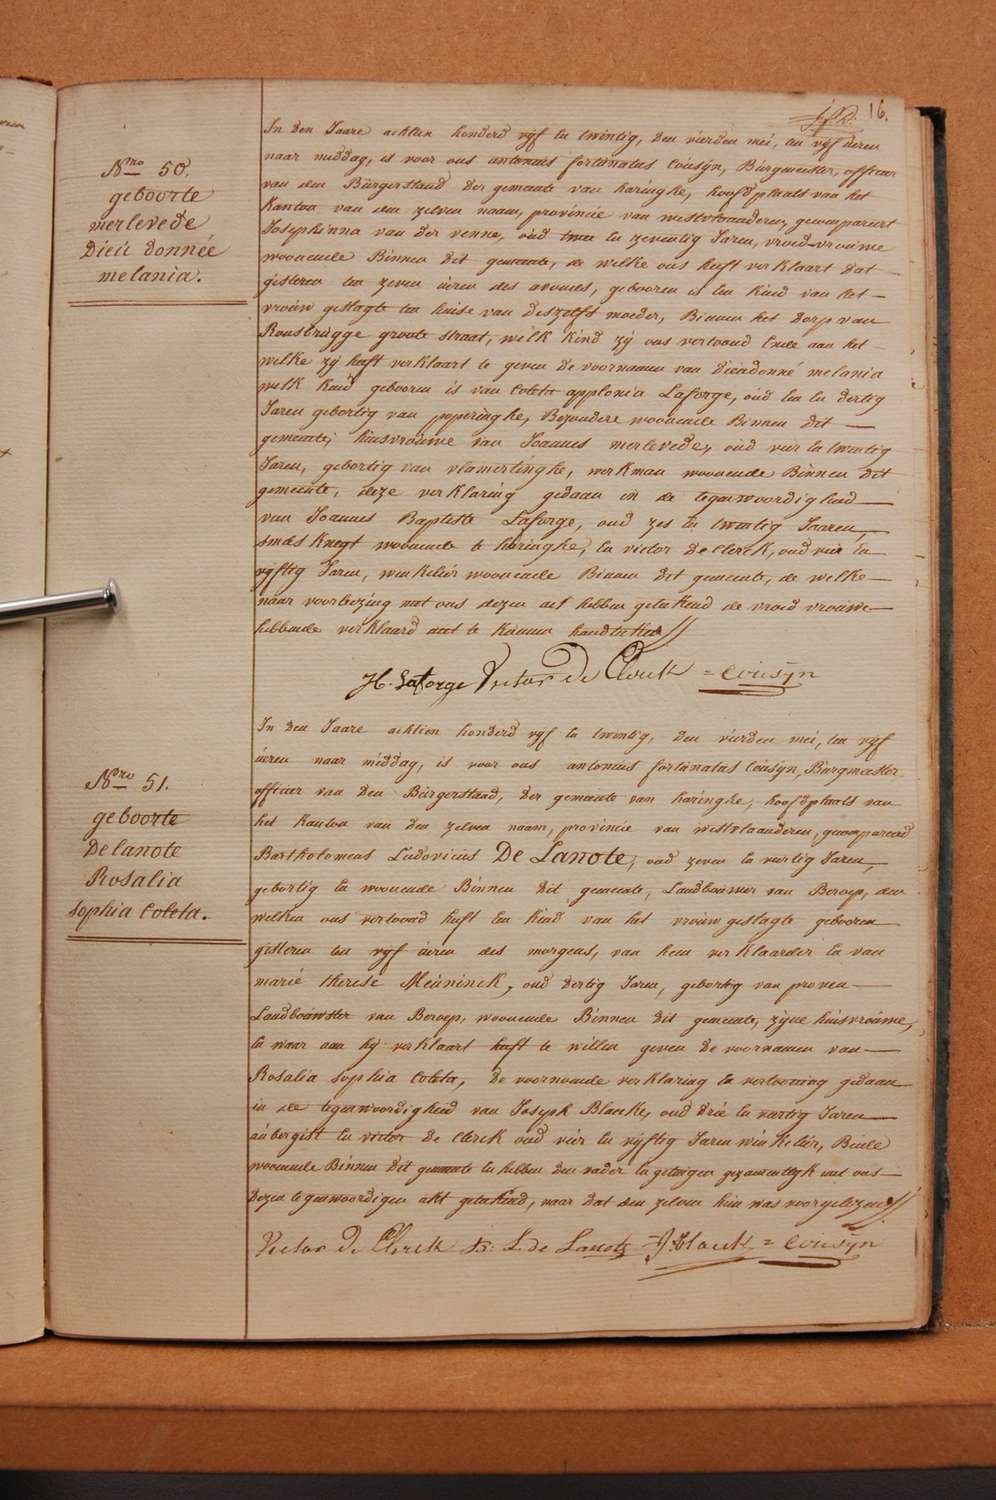 16.
Nro 50.
geboorte
merlevede
Dieu donnée
melania.
In den Jaare achtien honderd vyf en twintig, den vierden mei, ten vyf ueren
naar middag, is voor ons antonius fortunatus Cousÿn, Burgmeester, officier
van den Burgerstand der gemeente van haringhe, hoofdplaats van het
Kanton van den zelven naam, provincie van westvlaanderen, gecompareert
Josephinna van der venne, oud twee en zeventig Jaren, vroed-vrouwe
woonende Binnen dit gemeente, de welke ons heeft verklaart dat
gisteren ten zeven ueren des avonds, gebooren is een kind van het
vrouw geslagte ten huise van deszelfs moeder, Binnen het dorp van
Rousbrugge groote straat, welk kind zy ons vertoond ende aan het
welke zy heeft verklaart te geven de voornamen van Dieudonné melania
welk kind gebooren is van Coleta applonia Laforge, oud en dertig
Jaren gebortig van poperinghe, Bezondere woonende Binnen dit
gemeente, huisvrouwe van Joannes merlevede, oud vier en twintig
Jaren, gebortig van vlamertinghe, werkman woonende Binnen dit
gemeente, deze verklaring gedaan in de tegenwoordigheid
van Joannes Baptiste Laforge, oud zes en twintig Jaaren,
smids Knegt woonende te haringhe, en victor De Clerck, oud vier en
vyftig Jaren, winkelier woonende Binnen dit gemeente, de welke
naar voorlezing met ons dezen act hebben geteekend de vroed vrouwe
hebbende verklaard niet te konnen handteeken
H. Laforge Victor De Clerck = Cousÿn
Nro 51.
geboorte
Delanote
Rosalia
sophia Coleta.
In den Jaare achtien honderd vyf en twintig, den vierden mei, ten vyf
ueren naar middag, is voor ons antonius fortunatus Cousÿn, Burgmeester
officier van den Burgerstaad, der gemeente van haringhe, hoofdplaats van
het Kanton van den zelven naam, provincie van westvlaanderen, gecompareerd
Bartholomeus Ludovicus De Lanote, oud zeven en veertig Jaren,
gebortig en woonende Binnen dit gemeente, Landbouwer van Beroep, den
welken ons vertoond heeft een kind van het vrouw geslagte gebooren
gisteren ten vyf ueren des morgens, van hem verklaarder en van
marie therese Meuninck, oud dertig Jaren, gebortig van proven
Landbouwster van Beroep, woonende Binnen dit gemeente, zyne huisvrouwe,
en waar aan hy verklaart heeft te willen geven de voornamen van
Rosalia sophia Coleta, de voornoemde verklaring en vertooning gedaan
in de tegenwoordigheid van Joseph Blancke, oud drie en veertig Jaren
aubergist en victor De Clerck oud vier en vyftig Jaren winkelier, Beide
woonende Binnen dit gemeente en hebben den vader en getuigen gezamentlyk met ons
dezen tegenwoordigen akt geteekend, naar dat den zelven hun was voorgelezen
Victor De Clerck B: L. de Lanote = Cousÿn